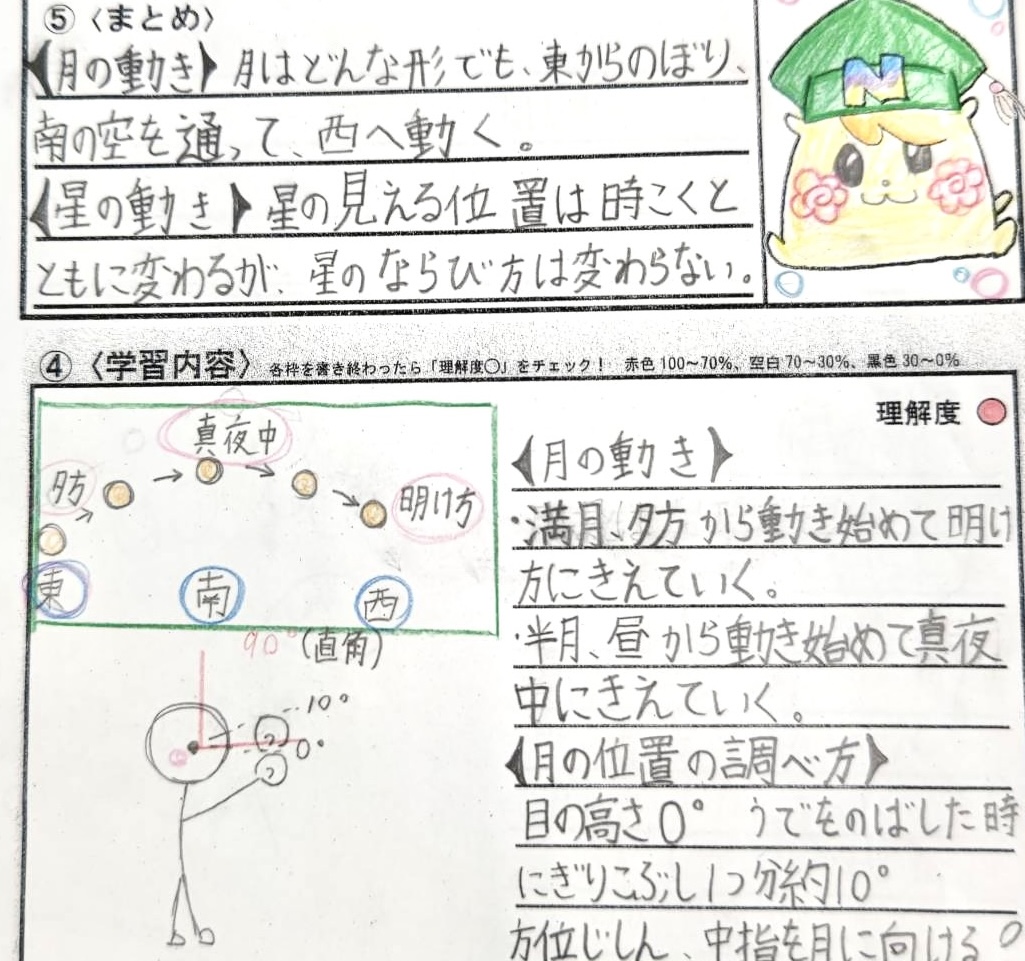 ⑤〈まとめ〉
【月の動き】月はどんな形でも、東からのぼり、
南の空を通って、西へ動く。
【星の動き】星の見える位置は時こくと
ともに変わるが、星のならび方は変わらない。
N
④〈学習内容〉各枠を書き終わったら「理解度○」をチェック! 赤色100~70%、空白70~30%、黒色30~0%
真夜中
夕方
明け方
東
南
西
90°(直角)
10°
0°
理解度
【月の動き】
・満月、夕方から動き始めて明け
方にきえていく。
・半月、昼から動き始めて真夜
中にきえていく。
【月の位置の調べ方】
目の高さ0° うでをのばした時
にぎりこぶし1つ分約10°
方位じしん、中指を月に向ける